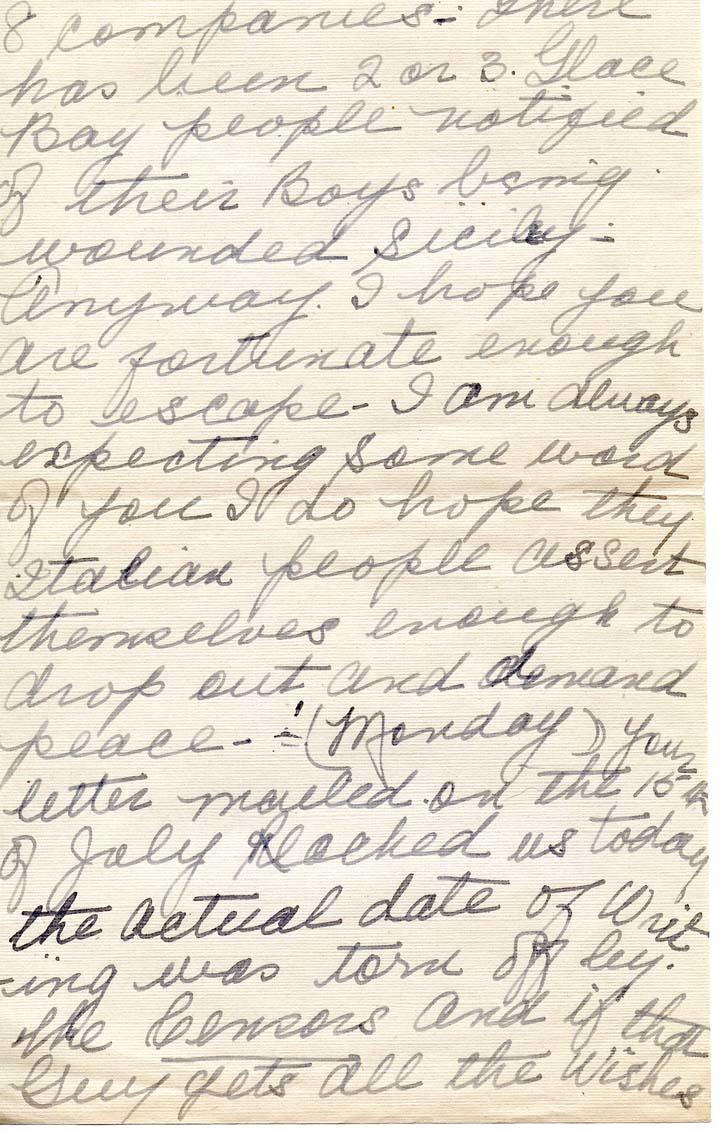 8 companies - There
has been 2 or 3. Glace
Bay people notified
of their Boys being
wounded Sicily -
Anyway. I hope you
are fortunate enough
to escape - I am always
expecting some word
of you I do hope they
Italian people assert
themselves enough to
drop out and demand
peace - - ! (Monday) Your
letter mailed on the 15th
of July Reached us today
the actual date of Writ
-ing was torn off by.
the Censors and if that
Guy gets all the Wishes